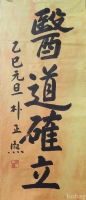 醫道確立
乙巳元旦 朴正熙